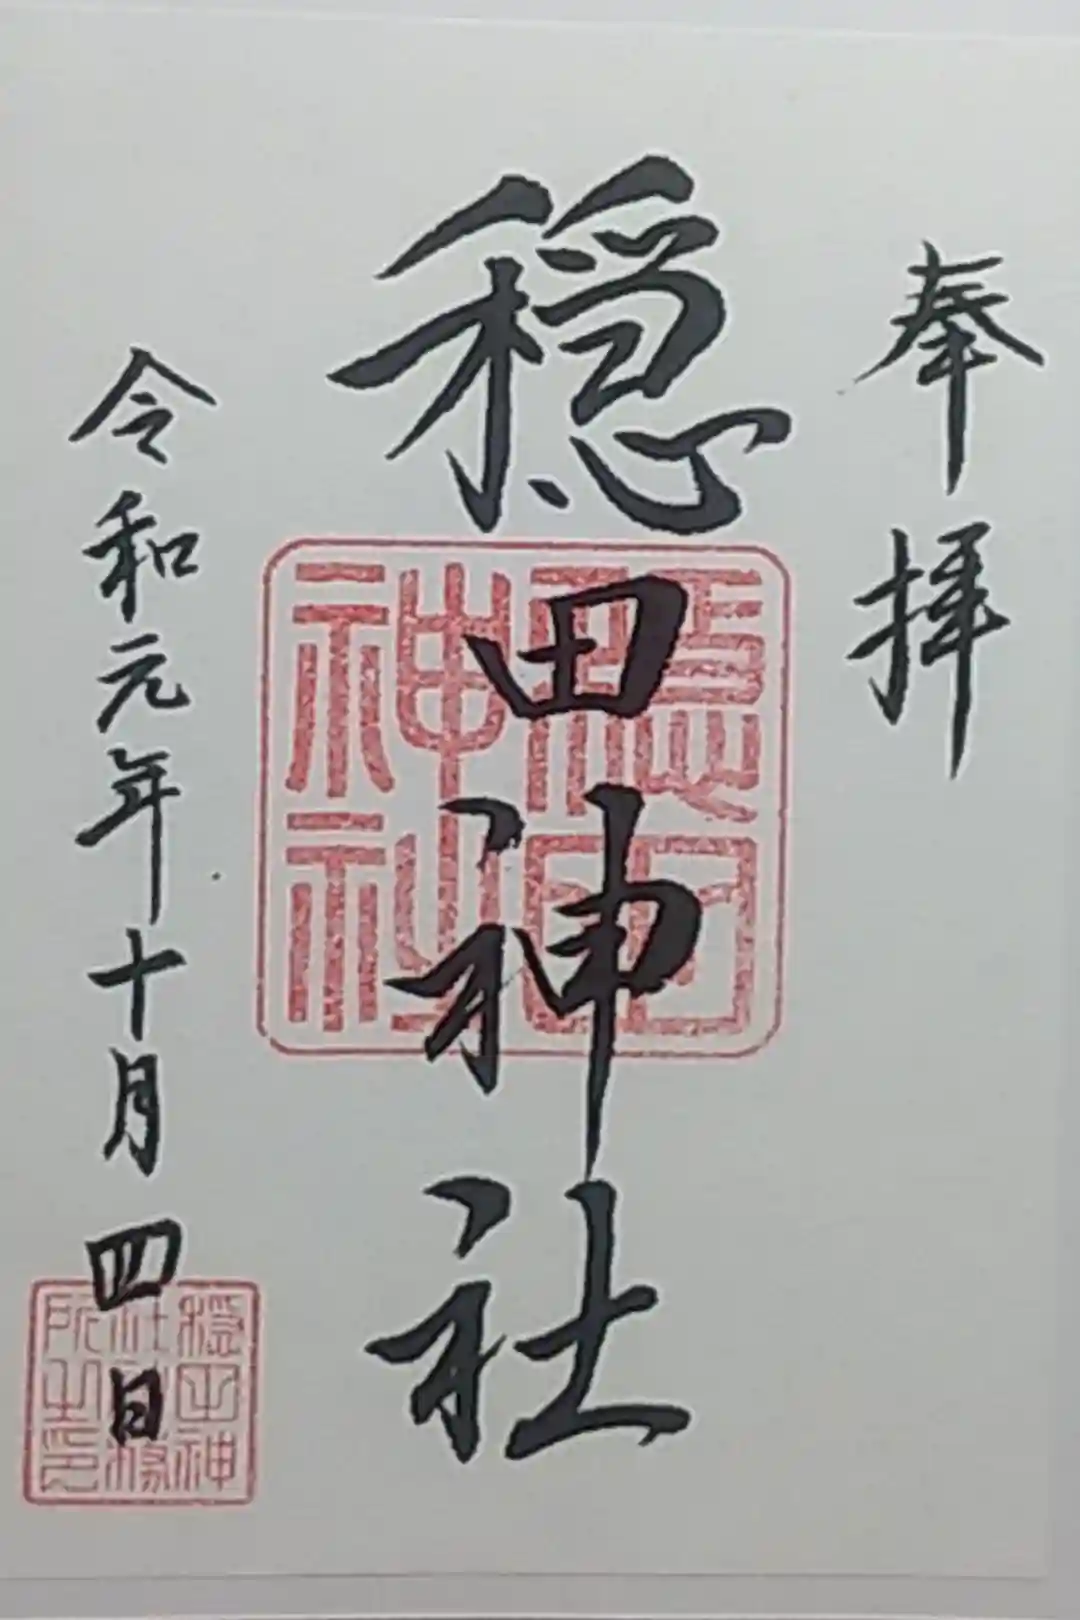 奉拝
穏田神社
令和元年十月四日
穏田
神社
穏田神
社務
所之印